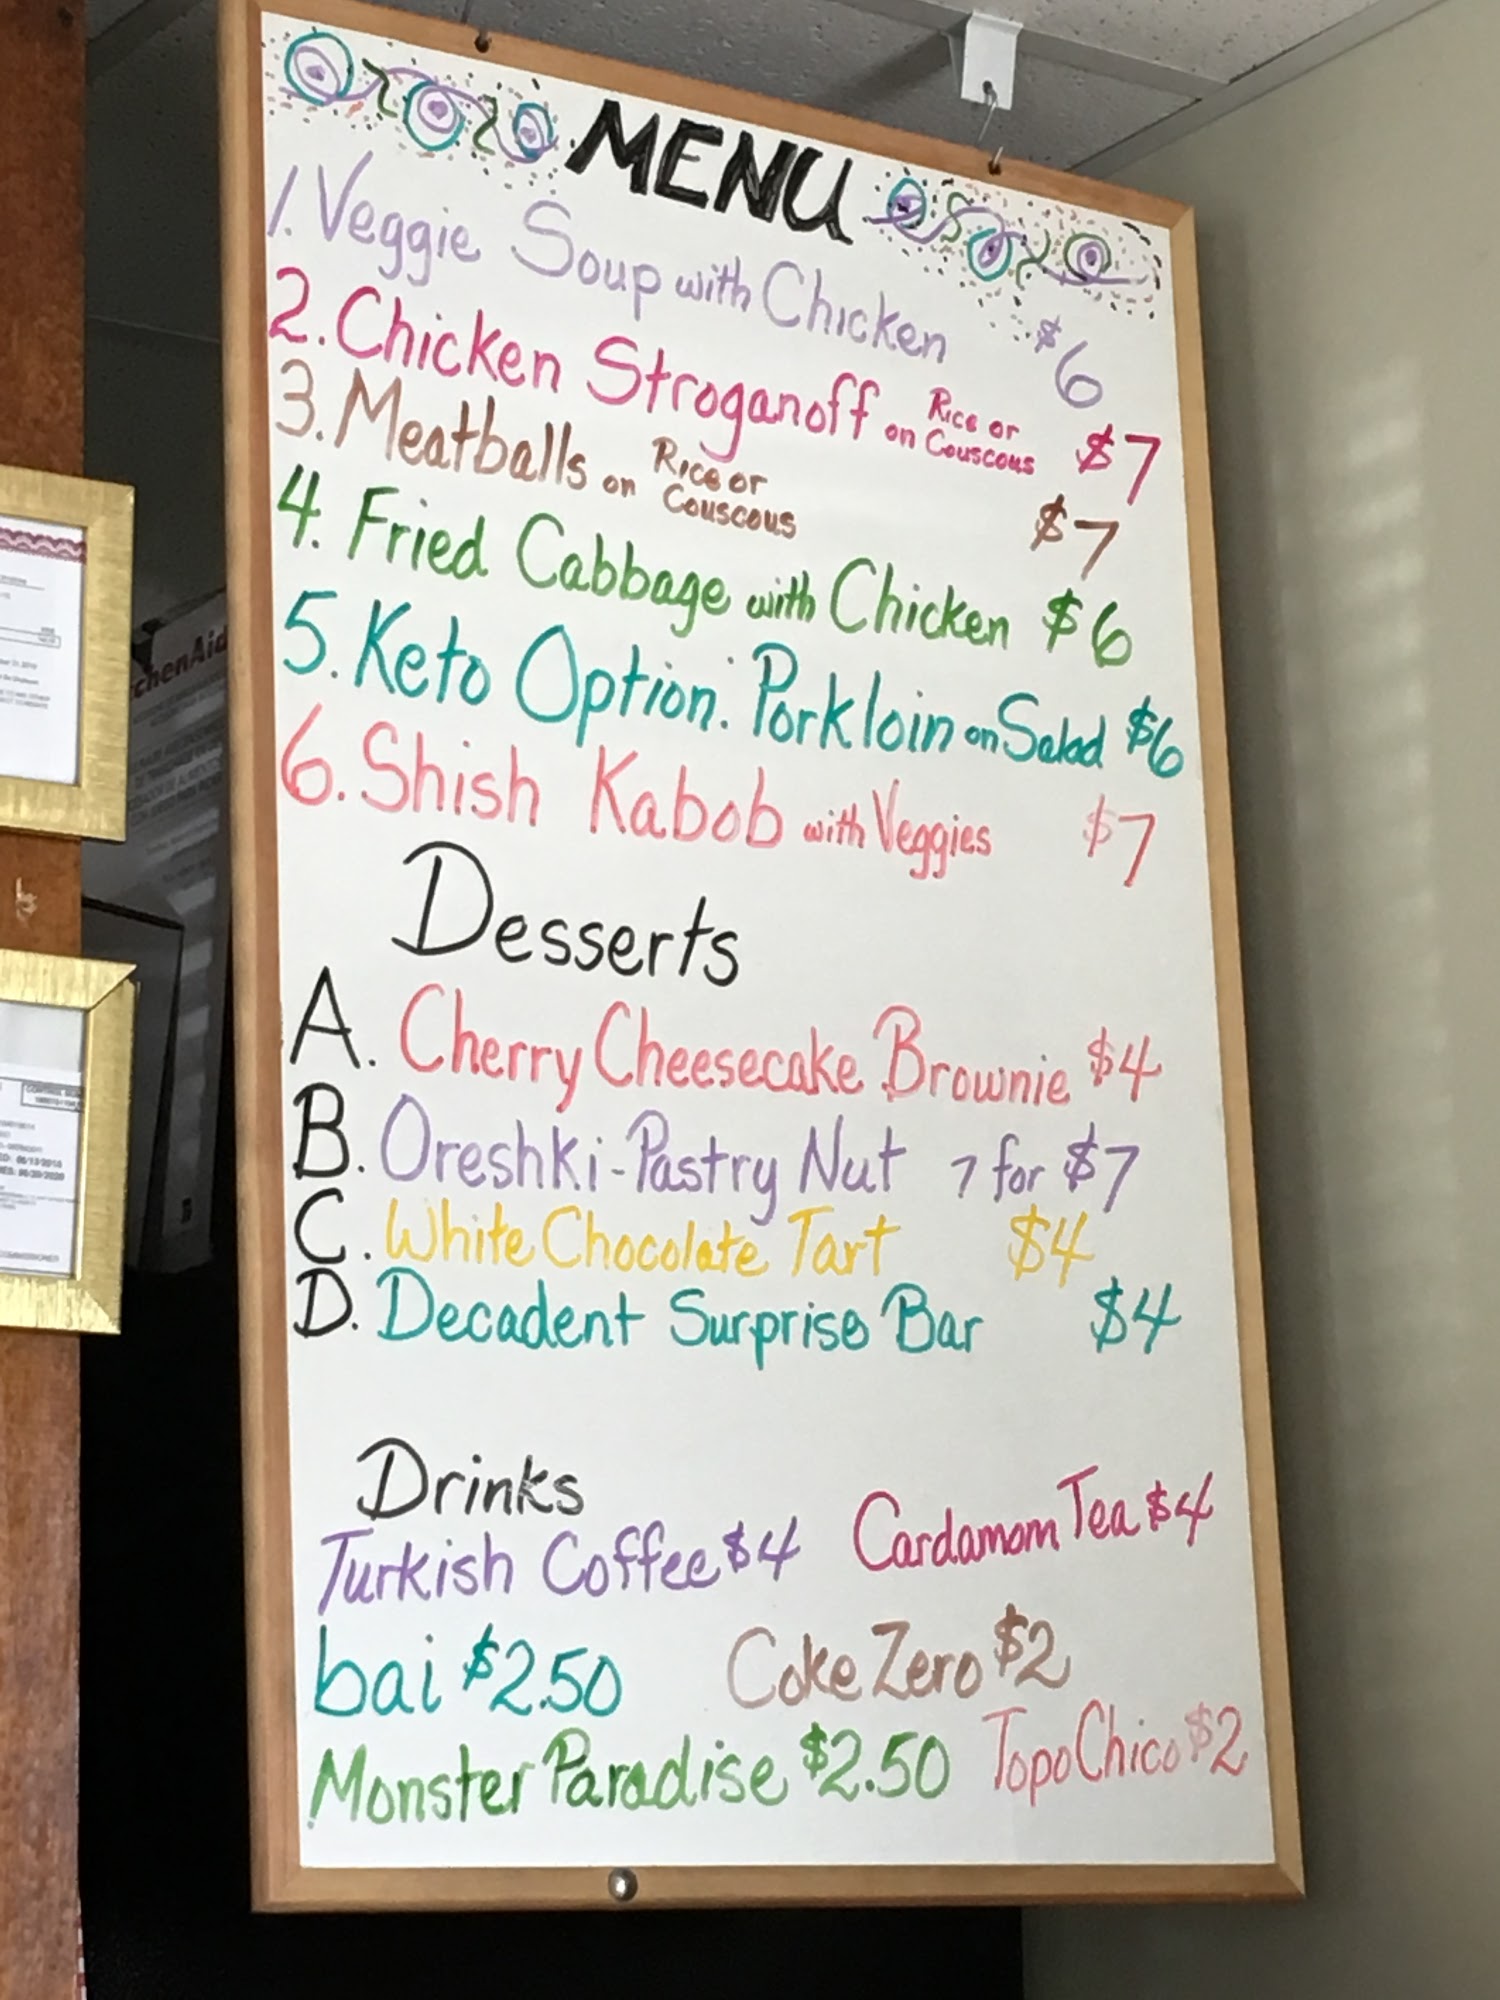 MENU
1. Veggie Soup with Chicken $6
2. Chicken Stroganoff on Rice or Couscous $7
3. Meatballs on Rice or Couscous $7
4. Fried Cabbage with Chicken $6
5. Keto Option: Porkloin on Salad $6
6. Shish Kabob with Veggies $7
Desserts
A. Cherry Cheesecake Brownie $4
B. Oreshki-Pastry Nut 7 for $7
C. White Chocolate Tart $4
D. Decadent Surprise Bar $4
Drinks
Turkish Coffee $4 Cardamom Tea $4
bai $2.50 Coke Zero $2
Monster Paradise $2.50 Topo Chico $2
chenAid